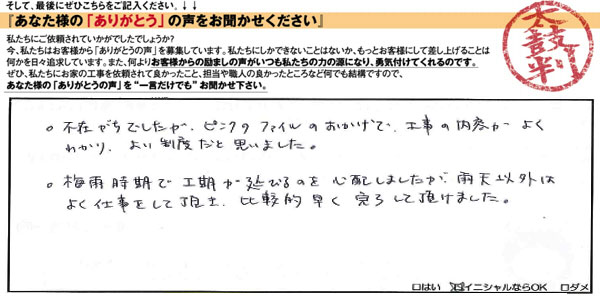 そして、最後にぜひこちらをご記入ください。↓↓↓
『あなた様の「ありがとう」の声をお聞かせください』
私たちにご依頼されていかがでしたでしょうか?
今、私たちはお客様から「ありがとうの声」を募集しています。私たちにしかできないことはないか、もっとお客様にして差し上げることは
何かを日々追求しています。また、何よりお客様からの励ましの声がいつも私たちの力の源になり、勇気付けてくれるのです。
ぜひ、私たちにお家の工事を依頼されて良かったこと、担当や職人の良かったところなど何でも結構ですので、
あなた様の「ありがとうの声」を"一言だけでも"お聞かせ下さい。
太鼓判
。不在がちでしたが、ピンクのファイルのおかげで、工事の内容がよく
わかり、よい制度だと思いました。
。梅雨時期で工期が延びるのを心配しましたが、雨天以外は
よく仕事をして頂き、比較的早く完了して頂けました。
□はい ☒イニシャルならOK □ダメ